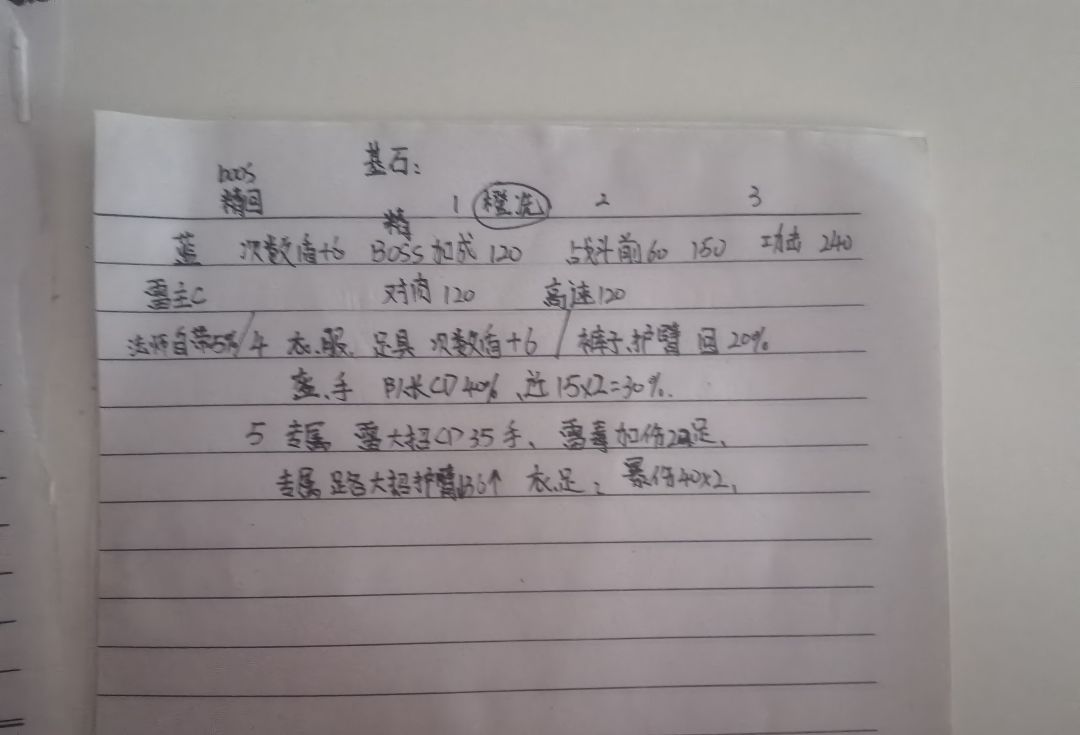 基石：
boos
精回 1 橙洗 2 3
精
蓝 次数值+6 BOSS加成120 战斗前60 150 功击240
雷主C 对肉120 高速120
法师自带5%/4 衣服、足具 次数值+6 / 裤子、护臂 回20%
、手 队长CD40%、近15x2=30%.
5 专属 雷大招CD35手、雷毒加伤 足、
专属 大招护臂 36↑ 衣足: 暴伤40x2、